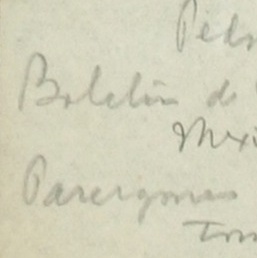 Pedr
Boletín de
Mexi
Parergones
Tom